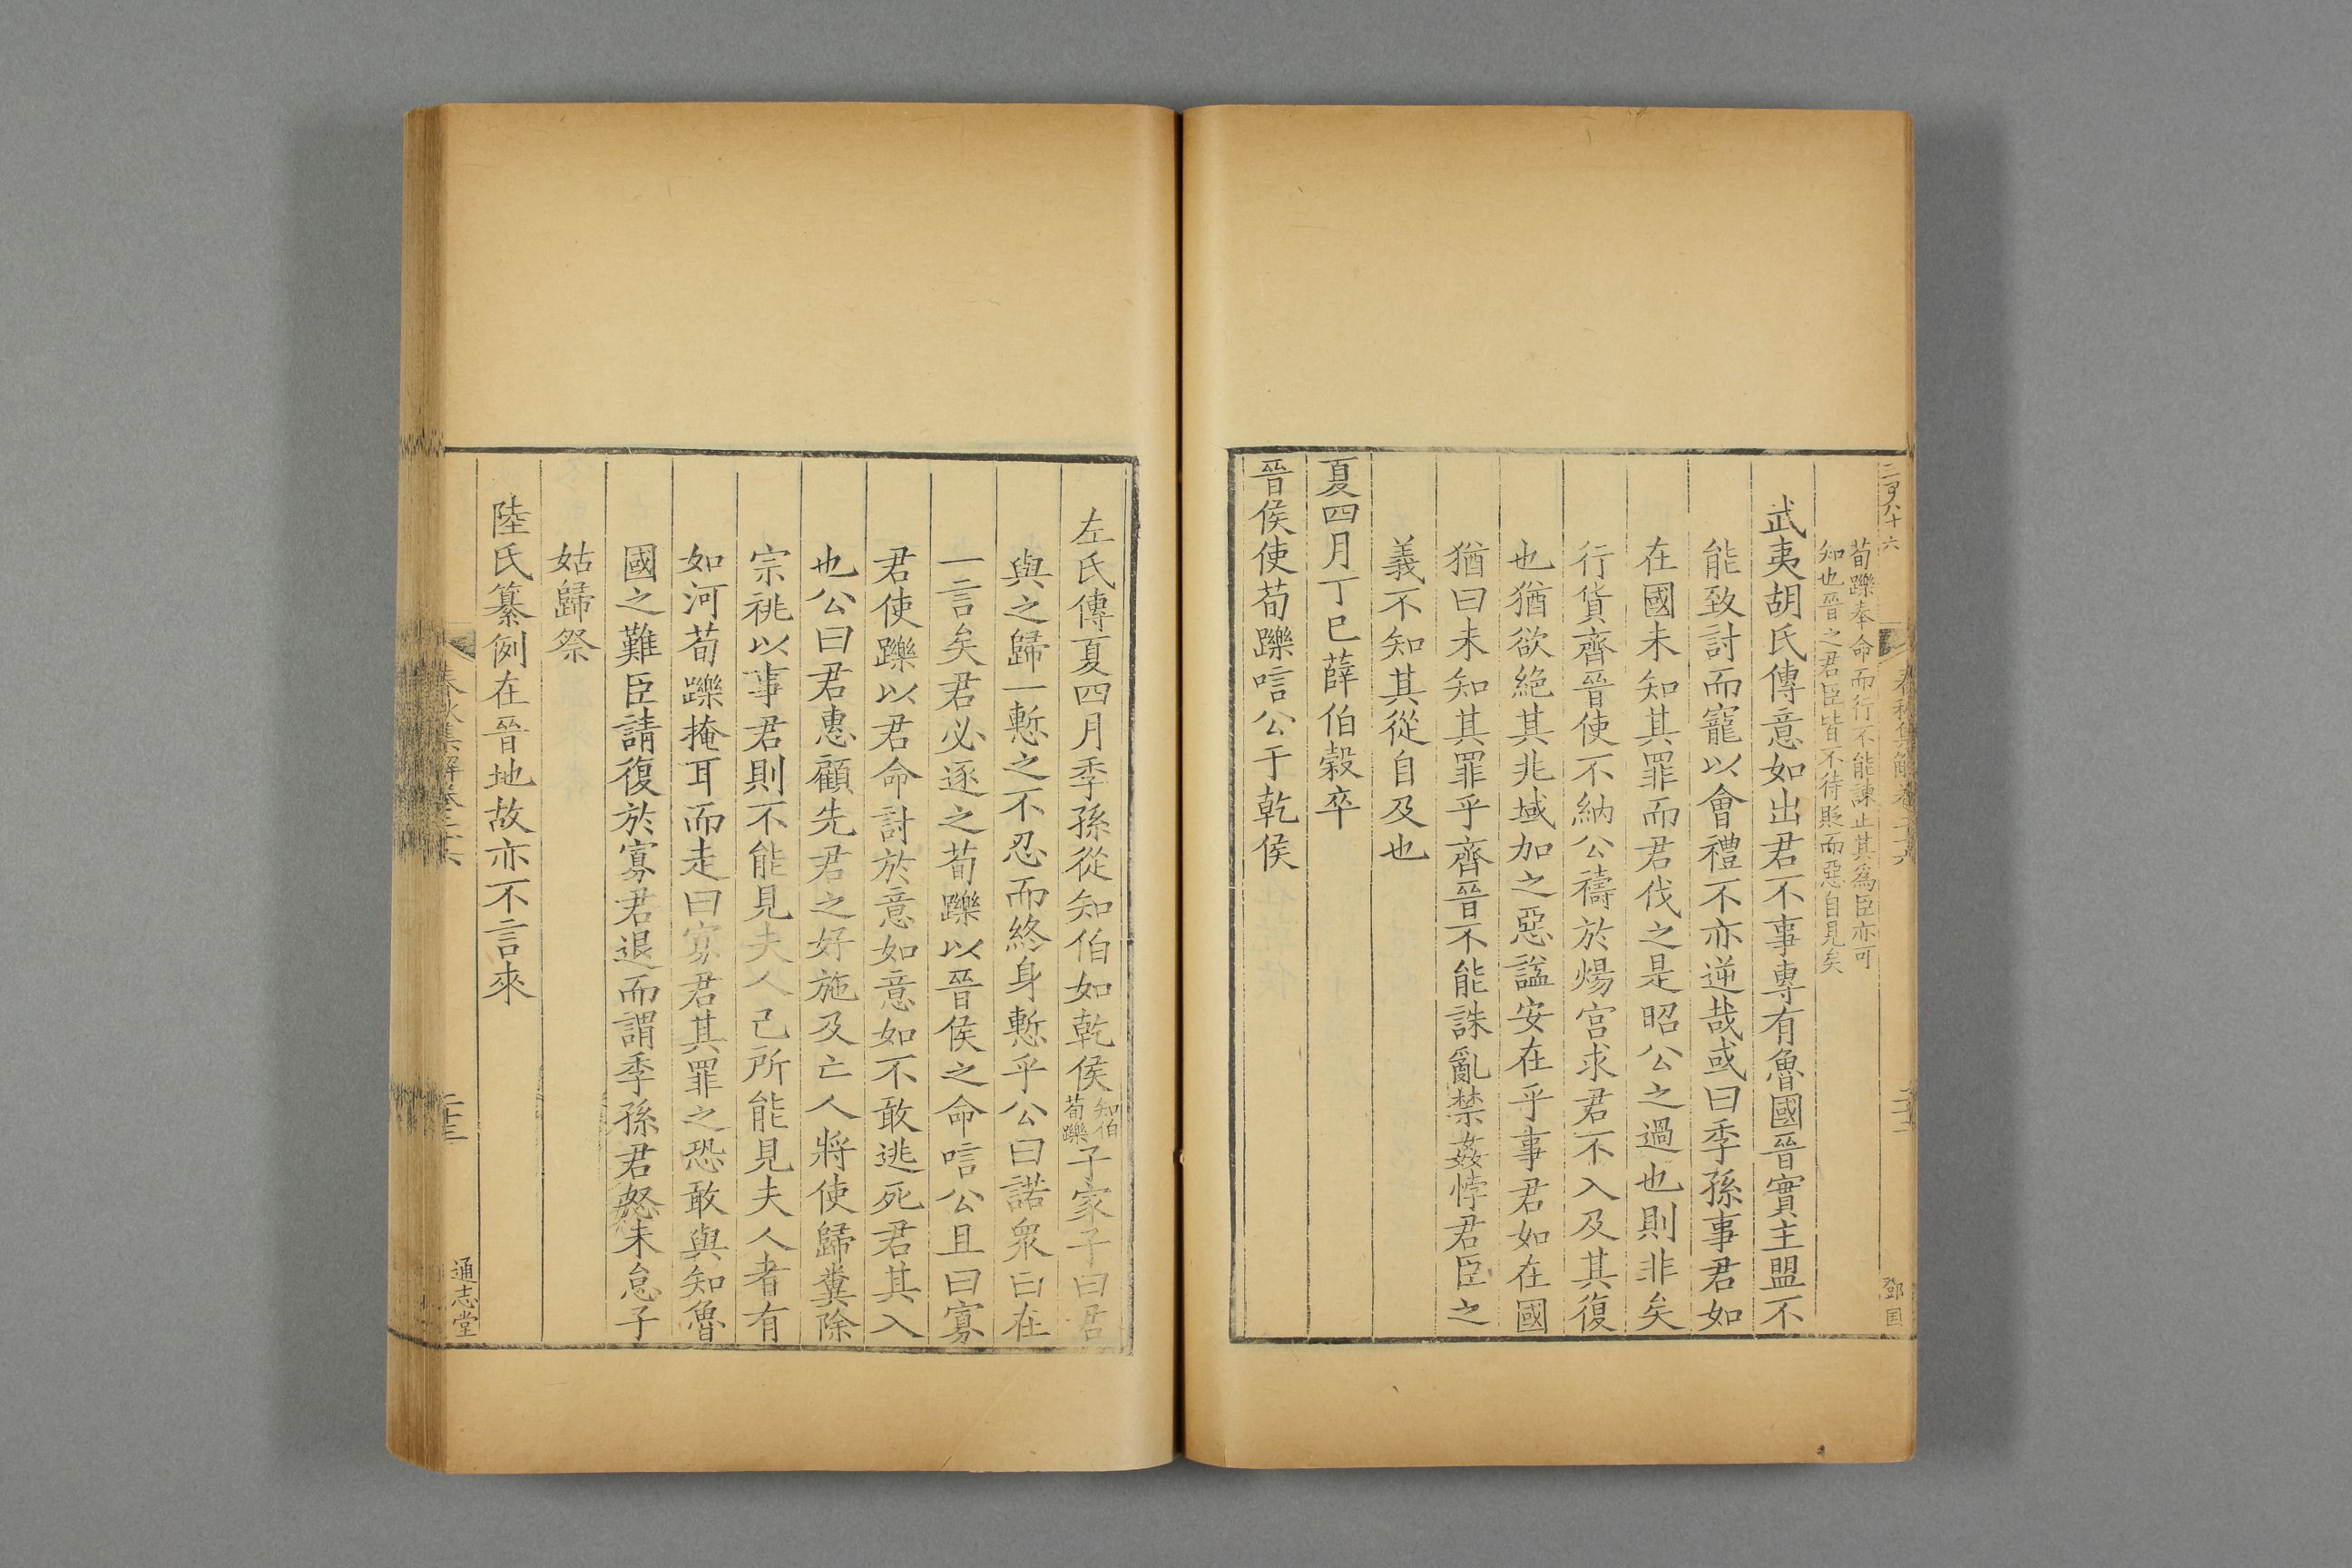 荀躒奉命而行不能諫止其為臣亦可
知也晉之君臣皆不待貶而惡自見矣
武夷胡氏傳意如出君不事專有魯國晉實主盟不
能致討而寵以會禮不亦逆哉或曰季孫事君如
在國未知其罪而君伐之是昭公之過也則非矣
行貨齊晉使不納公禱於煬宫求君不入及其復
也猶欲絶其兆域加之惡諡安在乎事君如在國
猶曰未知其罪乎齊晉不能誅亂禁姦悖君臣之
義不知其從自及也
夏四月丁巳薛伯穀卒
晉侯使荀躒唁公于乾侯
左氏傳夏四月季孫從知伯如乾侯知伯荀躒子家子曰君
與之歸一慙之不忍而終身慙乎公曰諾衆曰在
一言矣君必逐之荀躒以晉侯之命唁公且曰寡
君使躒以君命討於意如意如不敢逃死君其入
也公曰君惠顧先君之好施及亡人將使歸糞除
宗祧以事君則不能見夫人己所能見夫人者有
如河荀躒掩耳而走曰寡君其罪之恐敢與知魯
國之難臣請復於寡君退而謂季孫君怒未怠子
姑歸祭
陸氏纂例在晉地故亦不言來
春秋集解卷二十六
二十三
通志堂